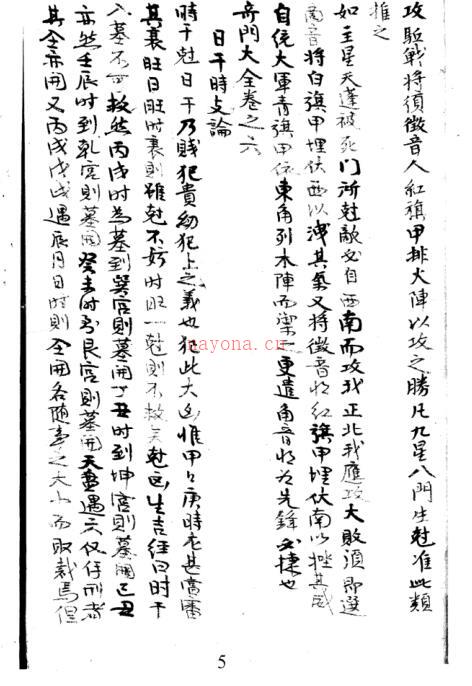 攻敗戰將須徵音人紅旗甲排火陣以攻之勝凡九星八門生尅准此類
推之
如主星天蓬被死門所尅敵必自西南而攻我正北我應攻大敗須即選
商音將白旗甲埋伏西以洩其氣又將徵音將紅旗甲埋伏南以挫其威
自統大軍青旗甲依東角列木陣而禦更遣角音將為先鋒必捷也
奇門大全卷之六
日干時支論
時干尅日干乃賤犯貴幼犯上之義也犯此大凶惟甲日庚時在甚廣審
其衰旺日旺時衰則雖尅不妨時旺一尅則不救 尅凶生吉經曰時干
入墓不可救然丙戌時為墓到巽宮則墓開丁丑時到坤宮則墓開己丑
亦然壬辰時到乾宮則墓開癸未時到艮宮則墓開天盤遇六仪付刑者
其全亦開又丙戌戊戌遇辰月日時則全開各隨意之大小而取裁焉但
nayona.cn
5